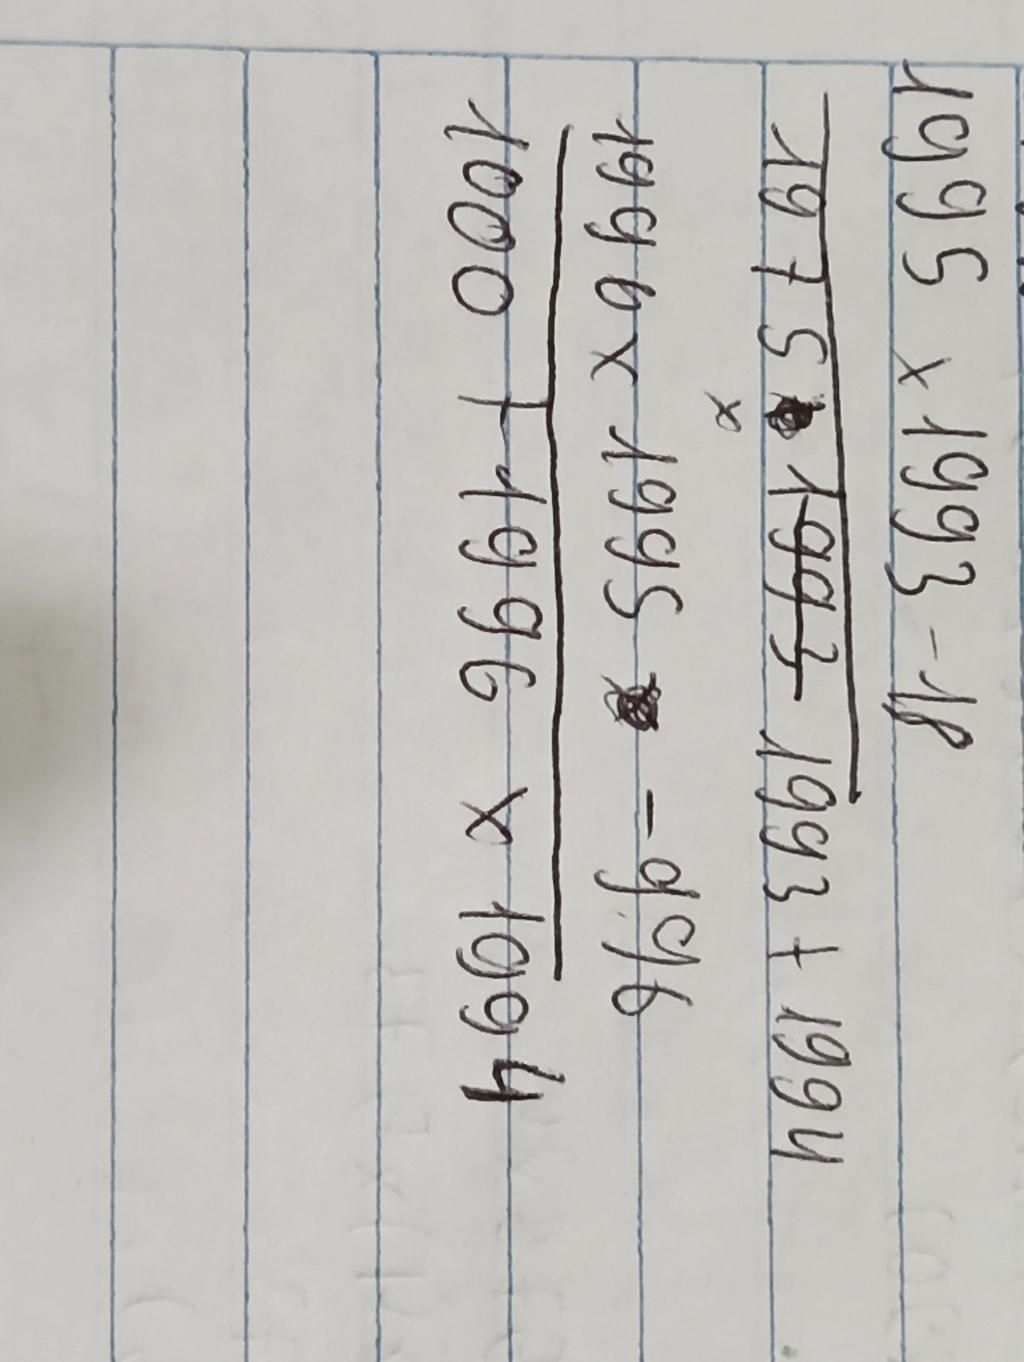 1995 x 1993 - 18
1975 x 1993 + 1994
1996 x 1995 - 996
1000 + 1996 x 1994